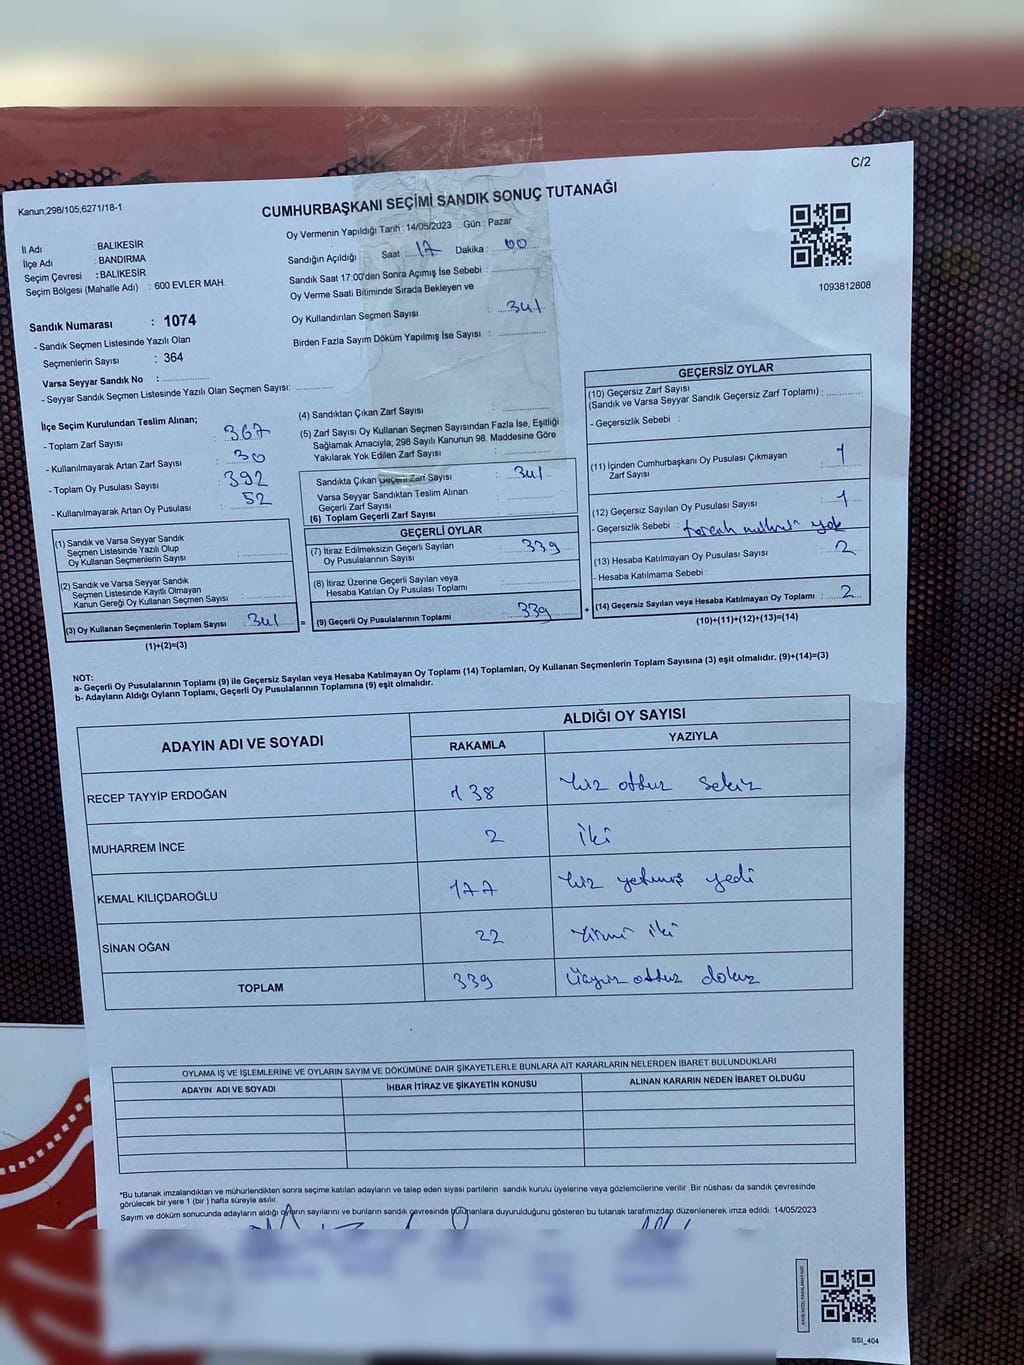 C/2
Kanun;298/105;6271/18-1
CUMHURBAŞKANI SEÇİMİ SANDIK SONUÇ TUTANAĞI
İl Adı : BALIKESİR
İlçe Adı : BANDIRMA
Seçim Çevresi : BALIKESİR
Seçim Bölgesi (Mahalle Adı) : 600 EVLER MAH.
Sandık Numarası : 1074
- Sandık Seçmen Listesinde Yazılı Olan
Seçmenlerin Sayısı : 364
Varsa Seyyar Sandık No :
- Seyyar Sandık Seçmen Listesinde Yazılı Olan Seçmen Sayısı:
Oy Vermenin Yapıldığı Tarih : 14/05/2023 Gün : Pazar
Sandığın Açıldığı Saat : 17 Dakika : 00
Sandık Saat 17:00'den Sonra Açımış İse Sebebi :
Oy Verme Saati Bitiminde Sırada Bekleyen ve
Oy Kullandırılan Seçmen Sayısı : 341
Birden Fazla Sayım Döküm Yapılmış İse Sayısı :
1093812808
İlçe Seçim Kurulundan Teslim Alınan;
- Toplam Zarf Sayısı : 367
- Kullanılmayarak Artan Zarf Sayısı : 30
- Toplam Oy Pusulası Sayısı : 392
- Kullanılmayarak Artan Oy Pusulası : 52
(1) Sandık ve Varsa Seyyar Sandık
Seçmen Listesinde Yazılı Olup
Oy Kullanan Seçmenlerin Sayısı :
(2) Sandık ve Varsa Seyyar Sandık
Seçmen Listesinde Kayıtlı Olmayan
Kanun Gereği Oy Kullanan Seçmen Sayısı :
(3) Oy Kullanan Seçmenlerin Toplam Sayısı : 341
(1)+(2)=(3)
(4) Sandıktan Çıkan Zarf Sayısı :
(5) Zarf Sayısı Oy Kullanan Seçmen Sayısından Fazla İse, Eşitliği
Sağlamak Amacıyla; 298 Sayılı Kanunun 98. Maddesine Göre
Yakılarak Yok Edilen Zarf Sayısı :
Sandıkta Çıkan Geçerli Zarf Sayısı : 341
Varsa Seyyar Sandıktan Teslim Alınan
Geçerli Zarf Sayısı :
(6) Toplam Geçerli Zarf Sayısı :
GEÇERLİ OYLAR
(7) İtiraz Edilmeksizin Geçerli Sayılan
Oy Pusulalarının Sayısı : 339
(8) İtiraz Üzerine Geçerli Sayılan veya
Hesaba Katılan Oy Pusulası Toplamı
= (9) Geçerli Oy Pusulalarının Toplamı : 339
GEÇERSİZ OYLAR
(10) Geçersiz Zarf Sayısı
(Sandık ve Varsa Seyyar Sandık Geçersiz Zarf Toplamı) :
- Geçersizlik Sebebi :
(11) İçinden Cumhurbaşkanı Oy Pusulası Çıkmayan
Zarf Sayısı : 1
(12) Geçersiz Sayılan Oy Pusulası Sayısı : 1
- Geçersizlik Sebebi : yok
(13) Hesaba Katılmayan Oy Pusulası Sayısı : 2
- Hesaba Katılmama Sebebi :
+ (14) Geçersiz Sayılan veya Hesaba Katılmayan Oy Toplamı : 2
(10)+(11)+(12)+(13)=(14)
NOT:
a- Geçerli Oy Pusulalarının Toplamı (9) ile Geçersiz Sayılan veya Hesaba Katılmayan Oy Toplamı (14) Toplamları, Oy Kullanan Seçmenlerin Toplam Sayısına (3) eşit olmalıdır. (9)+(14)=(3)
b- Adayların Aldığı Oyların Toplamı, Geçerli Oy Pusulalarının Toplamına (9) eşit olmalıdır.
ADAYIN ADI VE SOYADI
ALDIĞI OY SAYISI
RAKAMLA YAZIYLA
RECEP TAYYİP ERDOĞAN 138 Yüz otuz sekiz
MUHARREM İNCE 2 iki
KEMAL KILIÇDAROĞLU 177 Yüz yetmiş yedi
SİNAN OĞAN 22 Yirmi iki
TOPLAM 339 Üçyüz otuz dokuz
OYLAMA İŞ VE İŞLEMLERİNE VE OYLARIN SAYIM VE DÖKÜMÜNE DAİR ŞİKAYETLERLE BUNLARA AİT KARARLARIN NELERDEN İBARET BULUNDUKLARI
ADAYIN ADI VE SOYADI İHBAR İTİRAZ VE ŞİKAYETİN KONUSU ALINAN KARARIN NEDEN İBARET OLDUĞU
*Bu tutanak imzalandıktan ve mühürlendikten sonra seçime katılan adayların ve talep eden siyasi partilerin sandık kurulu üyelerine veya gözlemcilerine verilir. Bir nüshası da sandık çevresinde
görülecek bir yere 1 (bir ) hafta süreyle asılır.
Sayım ve döküm sonucunda adayların aldığı oyların sayılarını ve bunların sandık çevresinde bulunanlara duyurulduğunu gösteren bu tutanak tarafımızdan düzenlenerek imza edildi. 14/05/2023
SSI_404